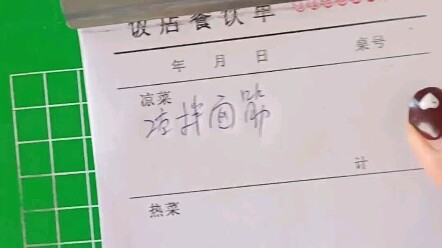 饭店餐饮单
年 月 日 桌号
凉菜
凉拌面筋
计
热菜